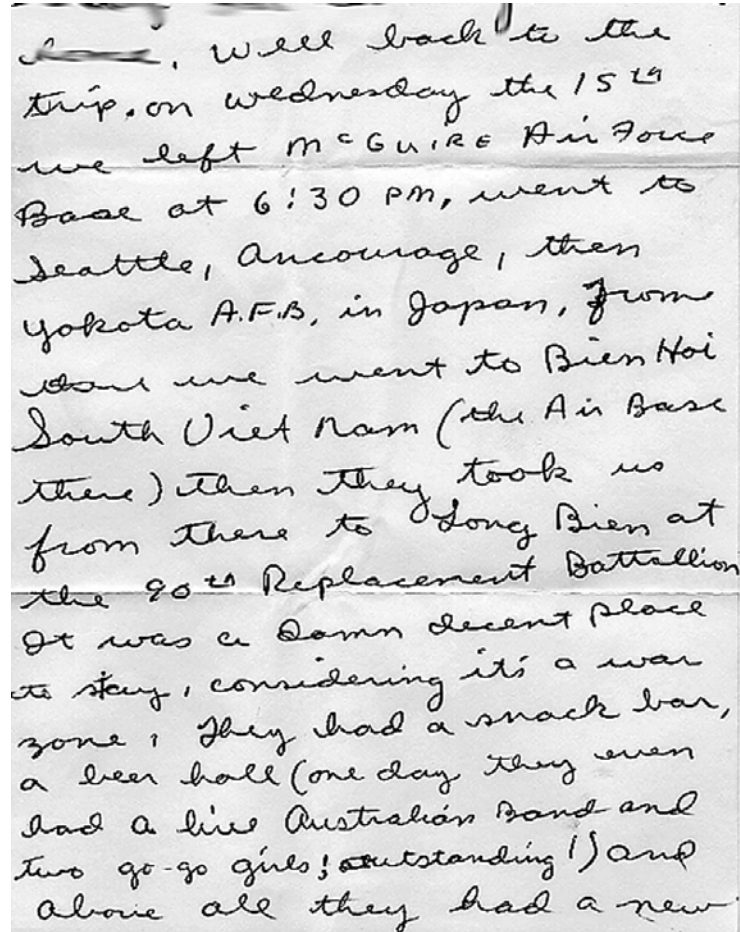 . Well back to the
trip. on wednesday the 15th
we left McGUIRE Air Force
Base at 6:30 PM, went to
Seattle, Ancourage, then
Yokota A.F.B, in Japan, From
we went to Bien Hoi
South Viet Nam (the Air Base
there) then they took us
from there to Long Bien at
the 90th Replacement Battallion
It was a damn decent place
to stay, considering it's a war
zone, They had a snack bar,
a beer hall (one day they even
had a live Australian Band and
two go-go girls; outstanding!) and
above all they had a new